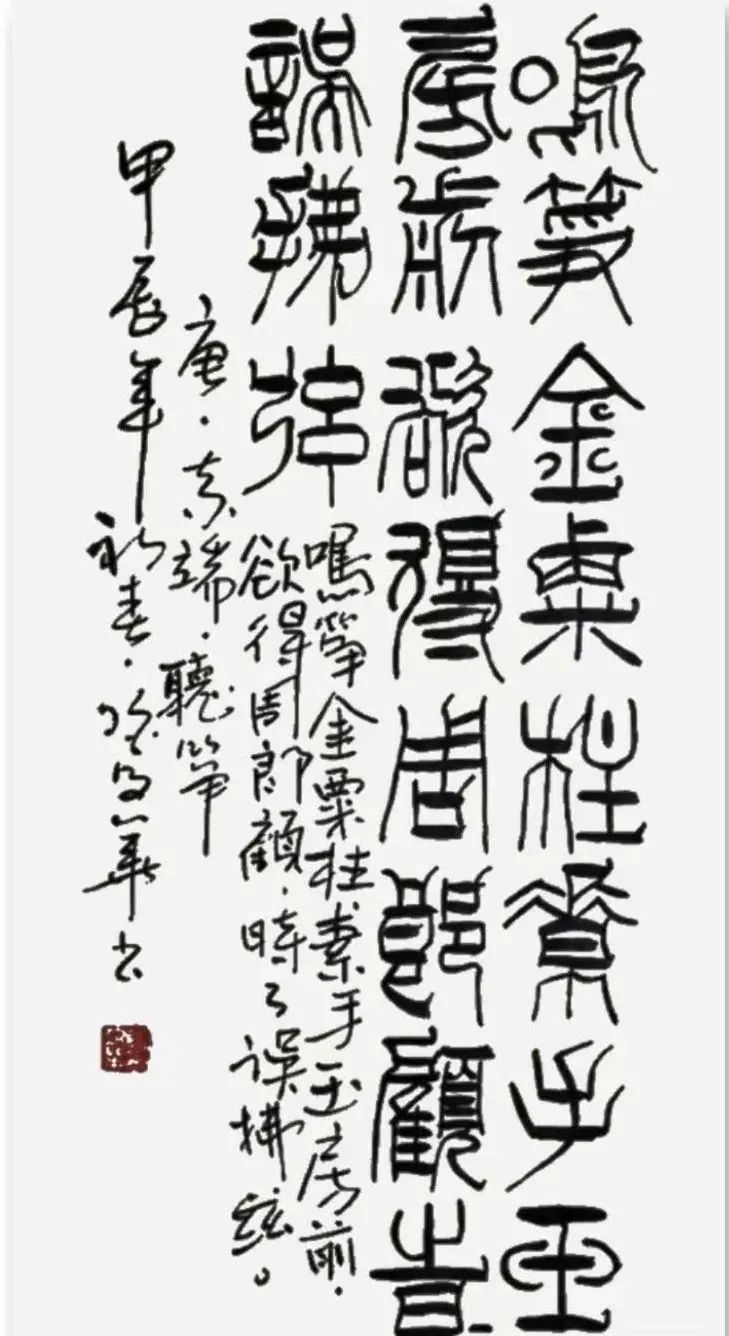 鳴箏金粟柱素手玉
房前欲得周郎顧時
誤拂弦
鳴箏金粟柱素手玉房前.
欲得周郎顧.時々误拂絃。
唐.李端.聽箏
甲辰年新春.華书